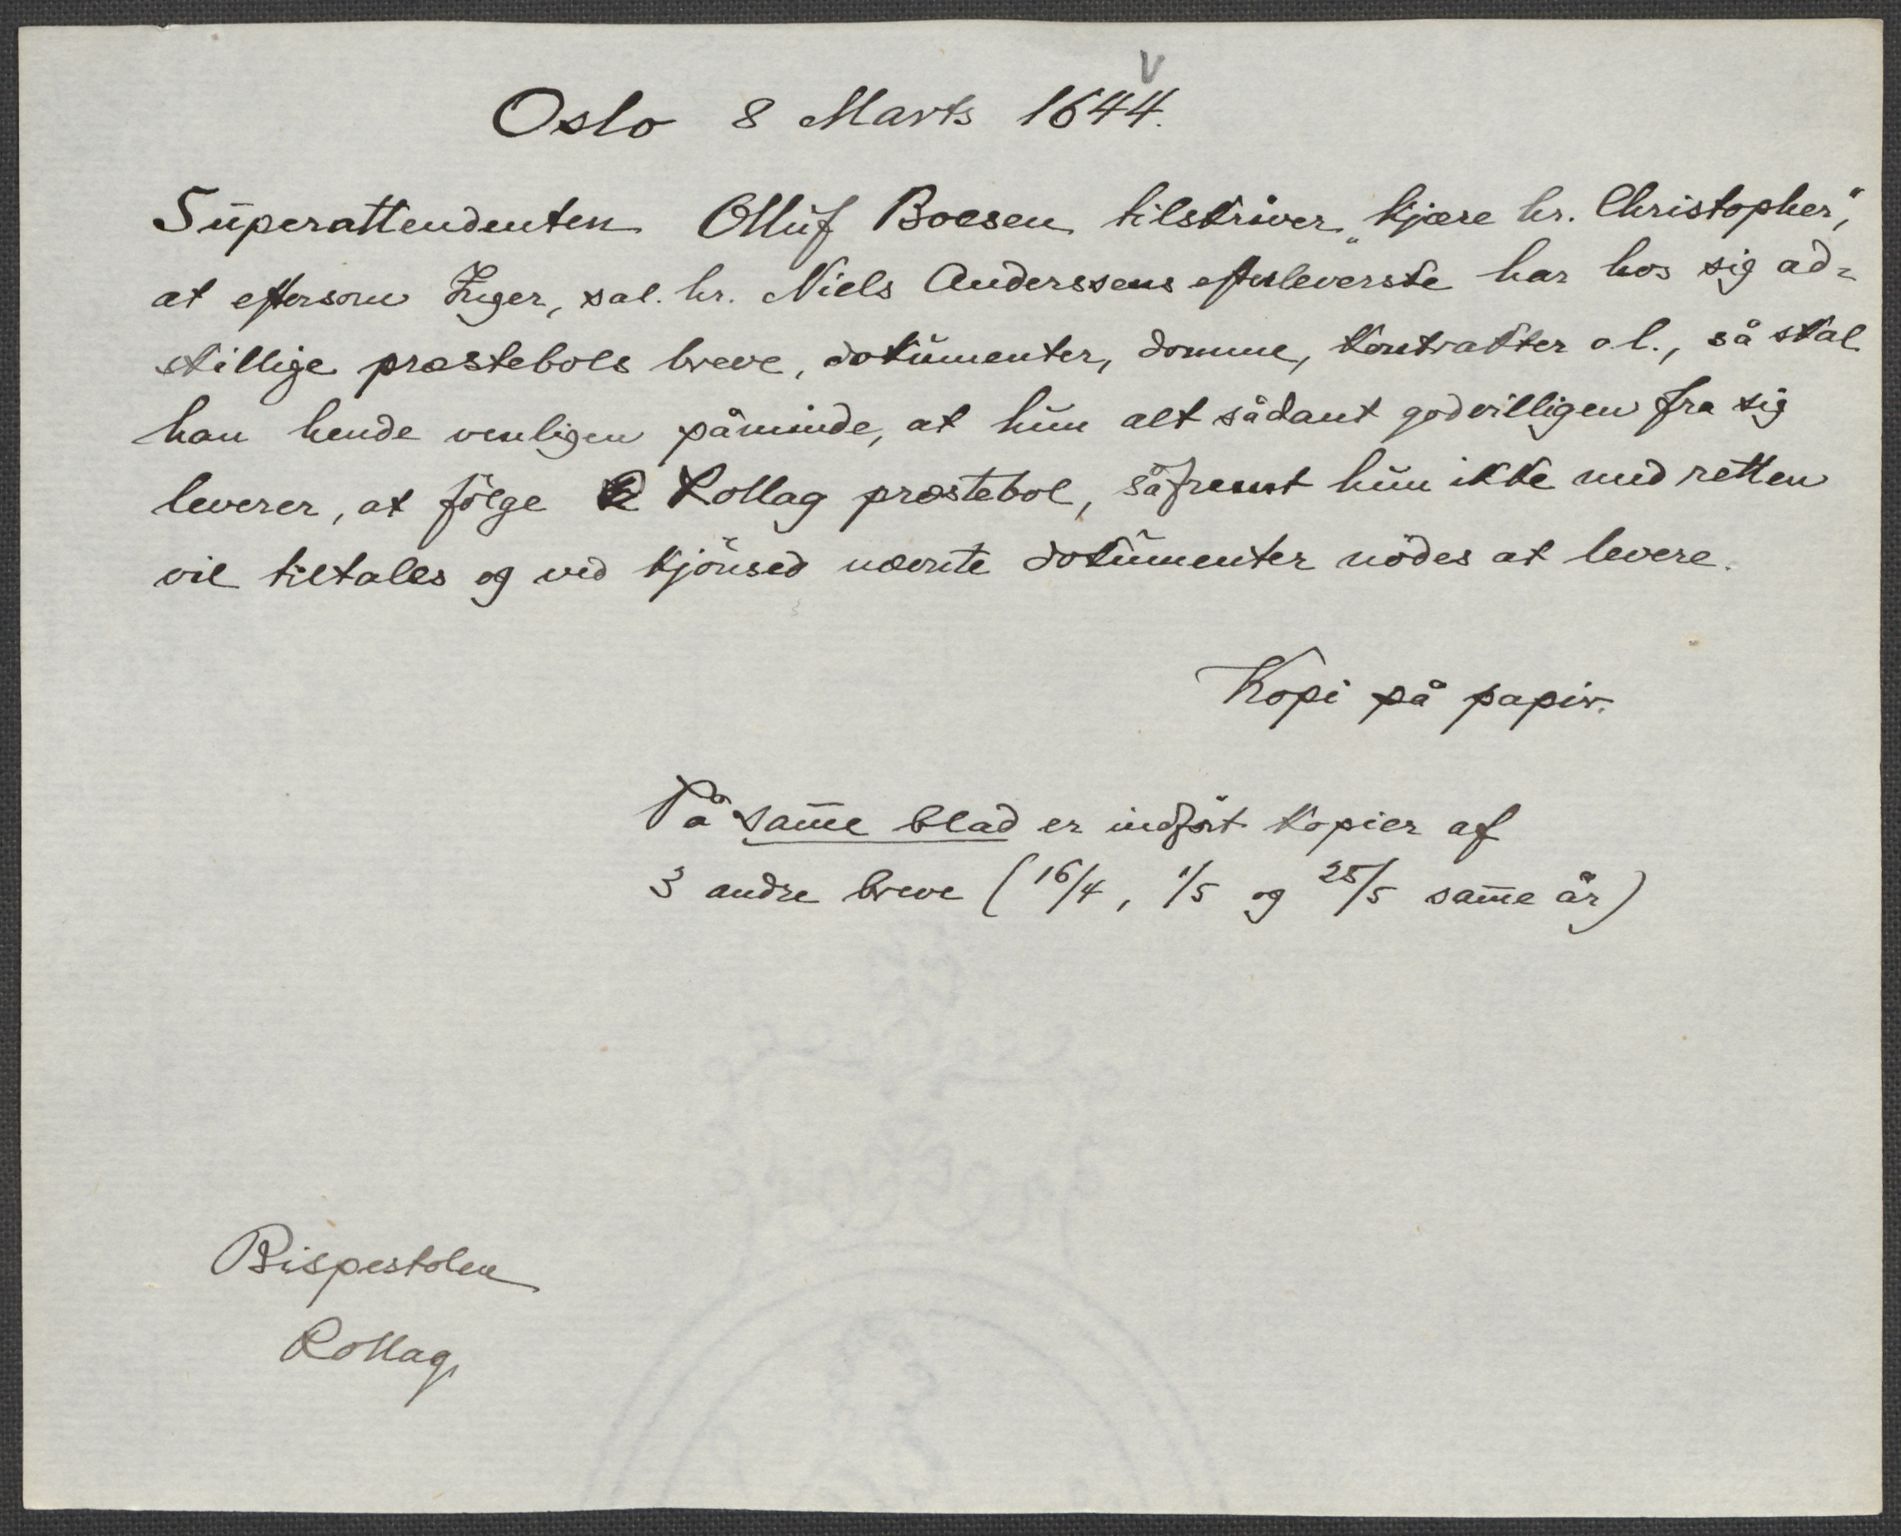 Oslo 8 Marts 1644.
Superattendenten Olluf Boesen tilskriver „kjære hr. Christopher“,
at eftersom Inger, sal. hr. Niels Anderssens efterleverske har hos sig ad=
skillige præstebols breve, dokumenter, domme, kontrakter o.l., så skal
han hende venligen påminde, at hun alt sådant godvilligen fra sig
leverer, at följe Rollag præstebol, såfremt hun ikke med retten
vil tiltales og ved kjönsed nævnte dokumenter nödes at levere.
Kopi på papir.
På sam̅e blad er indfört kopier af
3 andre breve (16/4, 1/5 og 25/5 sam̅e år)
Bispestolen
Rollag